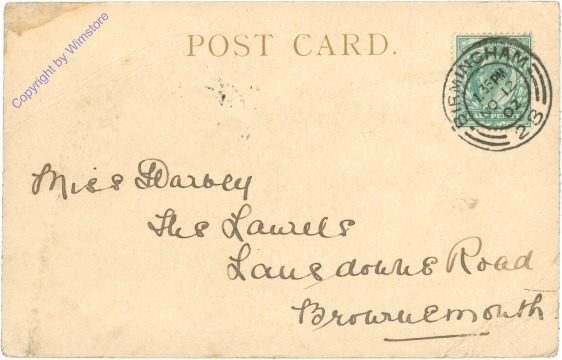 Copyright by Wimstore
POST CARD.
BIRMINGHAM
28
Miss Darbey
The Laurels
Lansdowne Road
Bournemouth